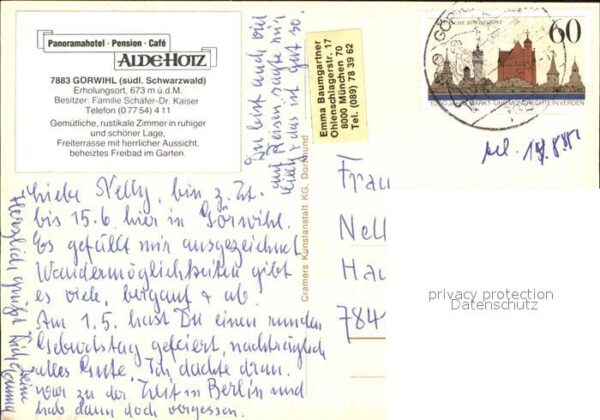 Panoramahotel · Pension · Café
ALDE-HOTZ
7883 GÖRWIHL (südl. Schwarzwald)
Erholungsort, 673 m ü.d.M.
Besitzer: Familie Schäfer-Dr. Kaiser
Telefon (0 77 54) 4 11
Gemütliche, rustikale Zimmer in ruhiger
und schöner Lage,
Freiterrasse mit herrlicher Aussicht,
beheiztes Freibad im Garten.
Du bist auch viel
auf Reisen sagte mir
das ist gut so.
Emma Baumgartner
Ohlenschlagerstr. 17
8000 München 70
Tel. (089) 78 39 62
60
1000 JAHRE MARKT- UND MÜNZRECHTE IN VERDEN
Cramers Kunstanstalt KG, Dortmund
Liebe Nelly, bin z. Zt.
bis 15.6. hier in Görwihl.
Es gefällt mir ausgezeichnet
Wandermöglichkeiten gibt
es viele, bergauf + ab.
Am 1.5. hast Du einen runden
Geburtstag gefeiert, nachträglich
alles Gute. Ich dachte dran.
war zu der Zeit in Berlin und
hab dann doch vergessen.
Herzlich grüßt Dich Deine
Emma
Frau
Nell
Hau
784
privacy protection
Datenschutz